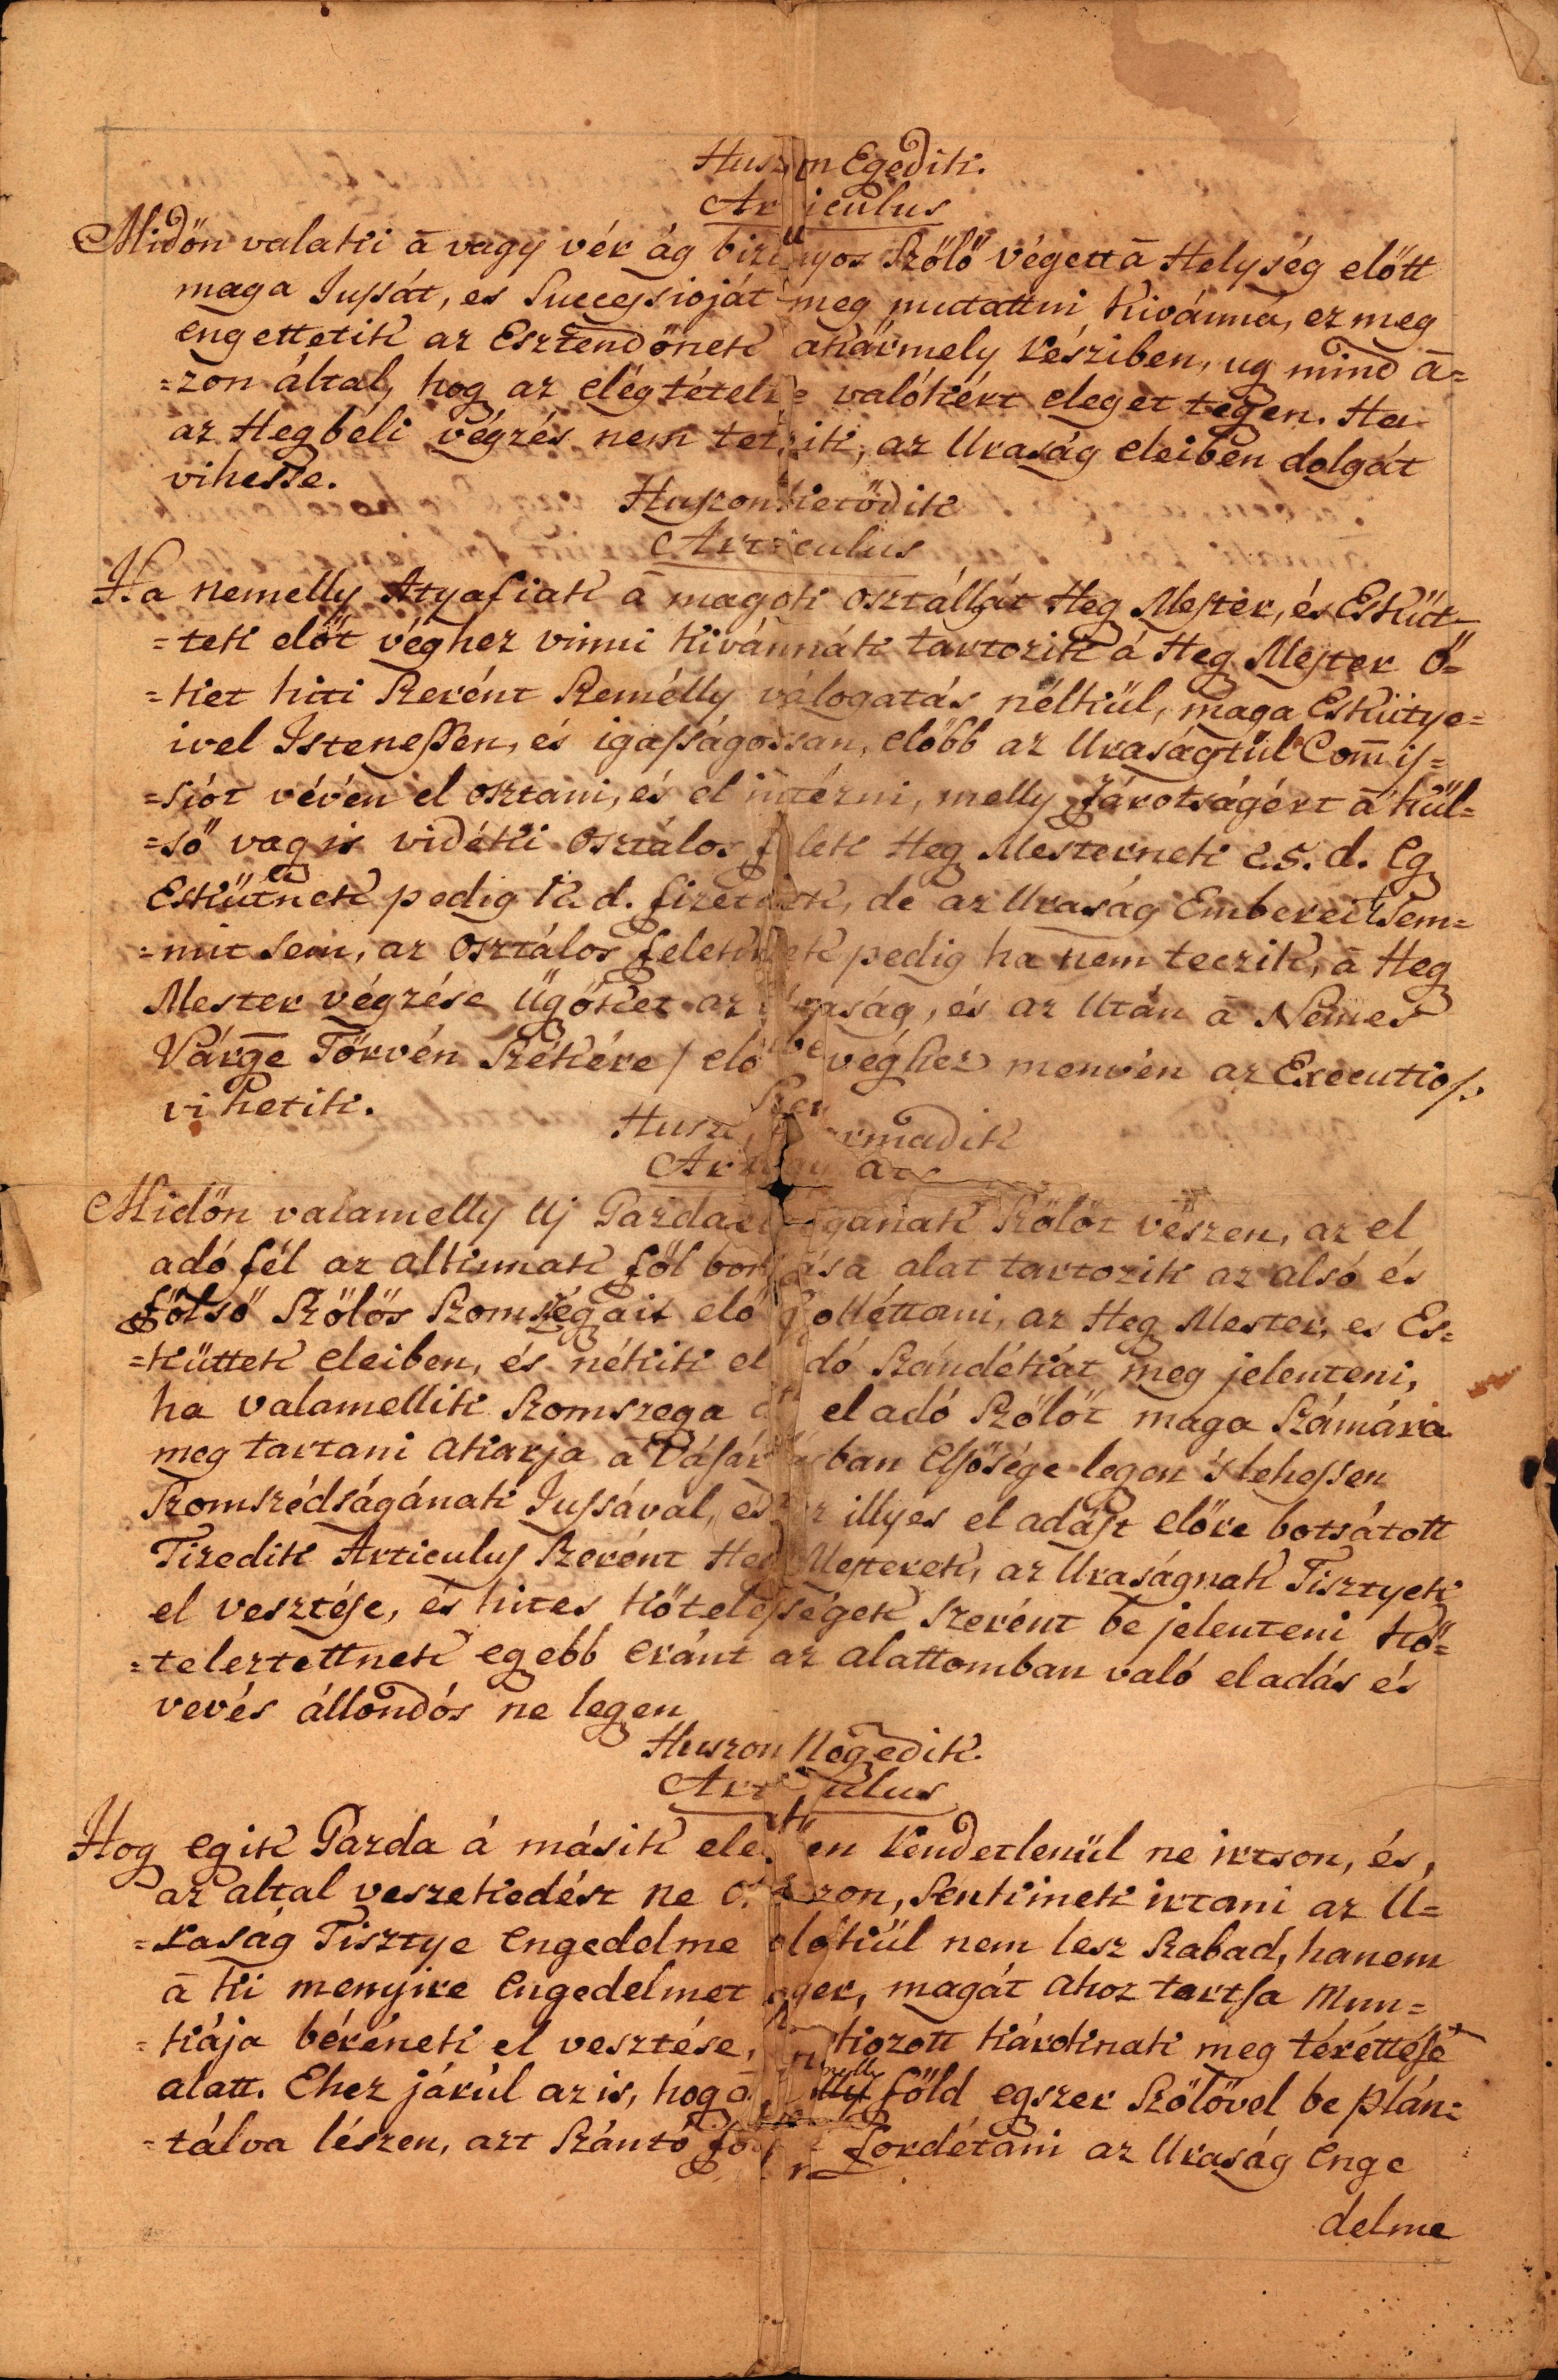 Huszon Egedik.
Articulus
Midőn valaki ā vagy vér ág bizonyos Szőlő végett ā Helység előtt
maga Juſsát, es Succeſsioját meg mutattni kivánná, ez meg
engettetik az Esztendőnek akármely részi ben, ug mind ā=
=zon által, hog az elégtételre valókért eleget tegen. Ha
az Hegbéli végzés nem tetzik, az Uraság eleiben dolgát
vihesse.
Huszonketődik
Articulus
Ha nemelly Atyafiak ā magok osztállyát Heg Mester, és Esküt-
=tek előt véghez vinni kivánnák tartozik á Heg Mester ő=
=ket hiti Szerént Személly válogatás nélkül, maga Eskütye=
ivel Isteneſsen, és igaſságossan, előbb az Uraságtúl Com̄iſ=
=siót vévén el osztani, és el intézni, melly fárotságért ā kül=
=ső vag is vidéki osztálos felek Heg Mesternek 25. d. Eg
Eskütnek pedig 12. d. fizetnek, de az Uraság Emberei Sem=
=mit sem, az osztálos feleknek pedig ha nem teczik, ā Heg
Mester végzése Ügőket az Uraság, és az Után ā Nemes
Várge Törvén Székére / elő véghez menvén az Executioſ
vihetik.
Husz armadik
Ar
Midőn valamelly Uj Gazda magának Szőlőt vészen, az el
adó fél az alkunak föl bomlása alat tartozik az alsó és
fölső Szőlős Szomségait elő Szolléttani, az Heg Mester, es Es=
=küttek eleiben, és nékik el adó Szándékát meg jelenteni,
ha valamellik Szomszega el adó Szőlőt maga Számára
meg tartani akarja ā Váſárlásban Elsősége legen 's lehessen
Szomszédságának Juſsával, és az illyes el adást előre botsátott
Tizedik Articuluſ Szerént Heg Mesterek, az Uraságnak Tisztyek
el vesztéſe, és hites kőteleſségek szerént be jelenteni kő=
=teleztettnek egebb eránt az alattomban való el adás és
vevés állondós ne legen
Huszon Negedik.
Articulus
Hog egik Gazda á másik elenében rendetlenül ne irtson, és,
az altal veszekedést ne okozzon, Senkinek irtani az U=
=raság Tisztye Engedelme nélkül nem lesz Szabad, hanem
ā ki menyire Engedelmet nyer, magát ahoz tartſa Mun=
=kája bérének el vesztése, okozott károknak meg téréttéſe
alatt. Ehez járúl az is, hog ā melly föld egszer Szőlővel be plán=
=tálva lészen, azt Szántó fordétani az Uraság Enge
delme